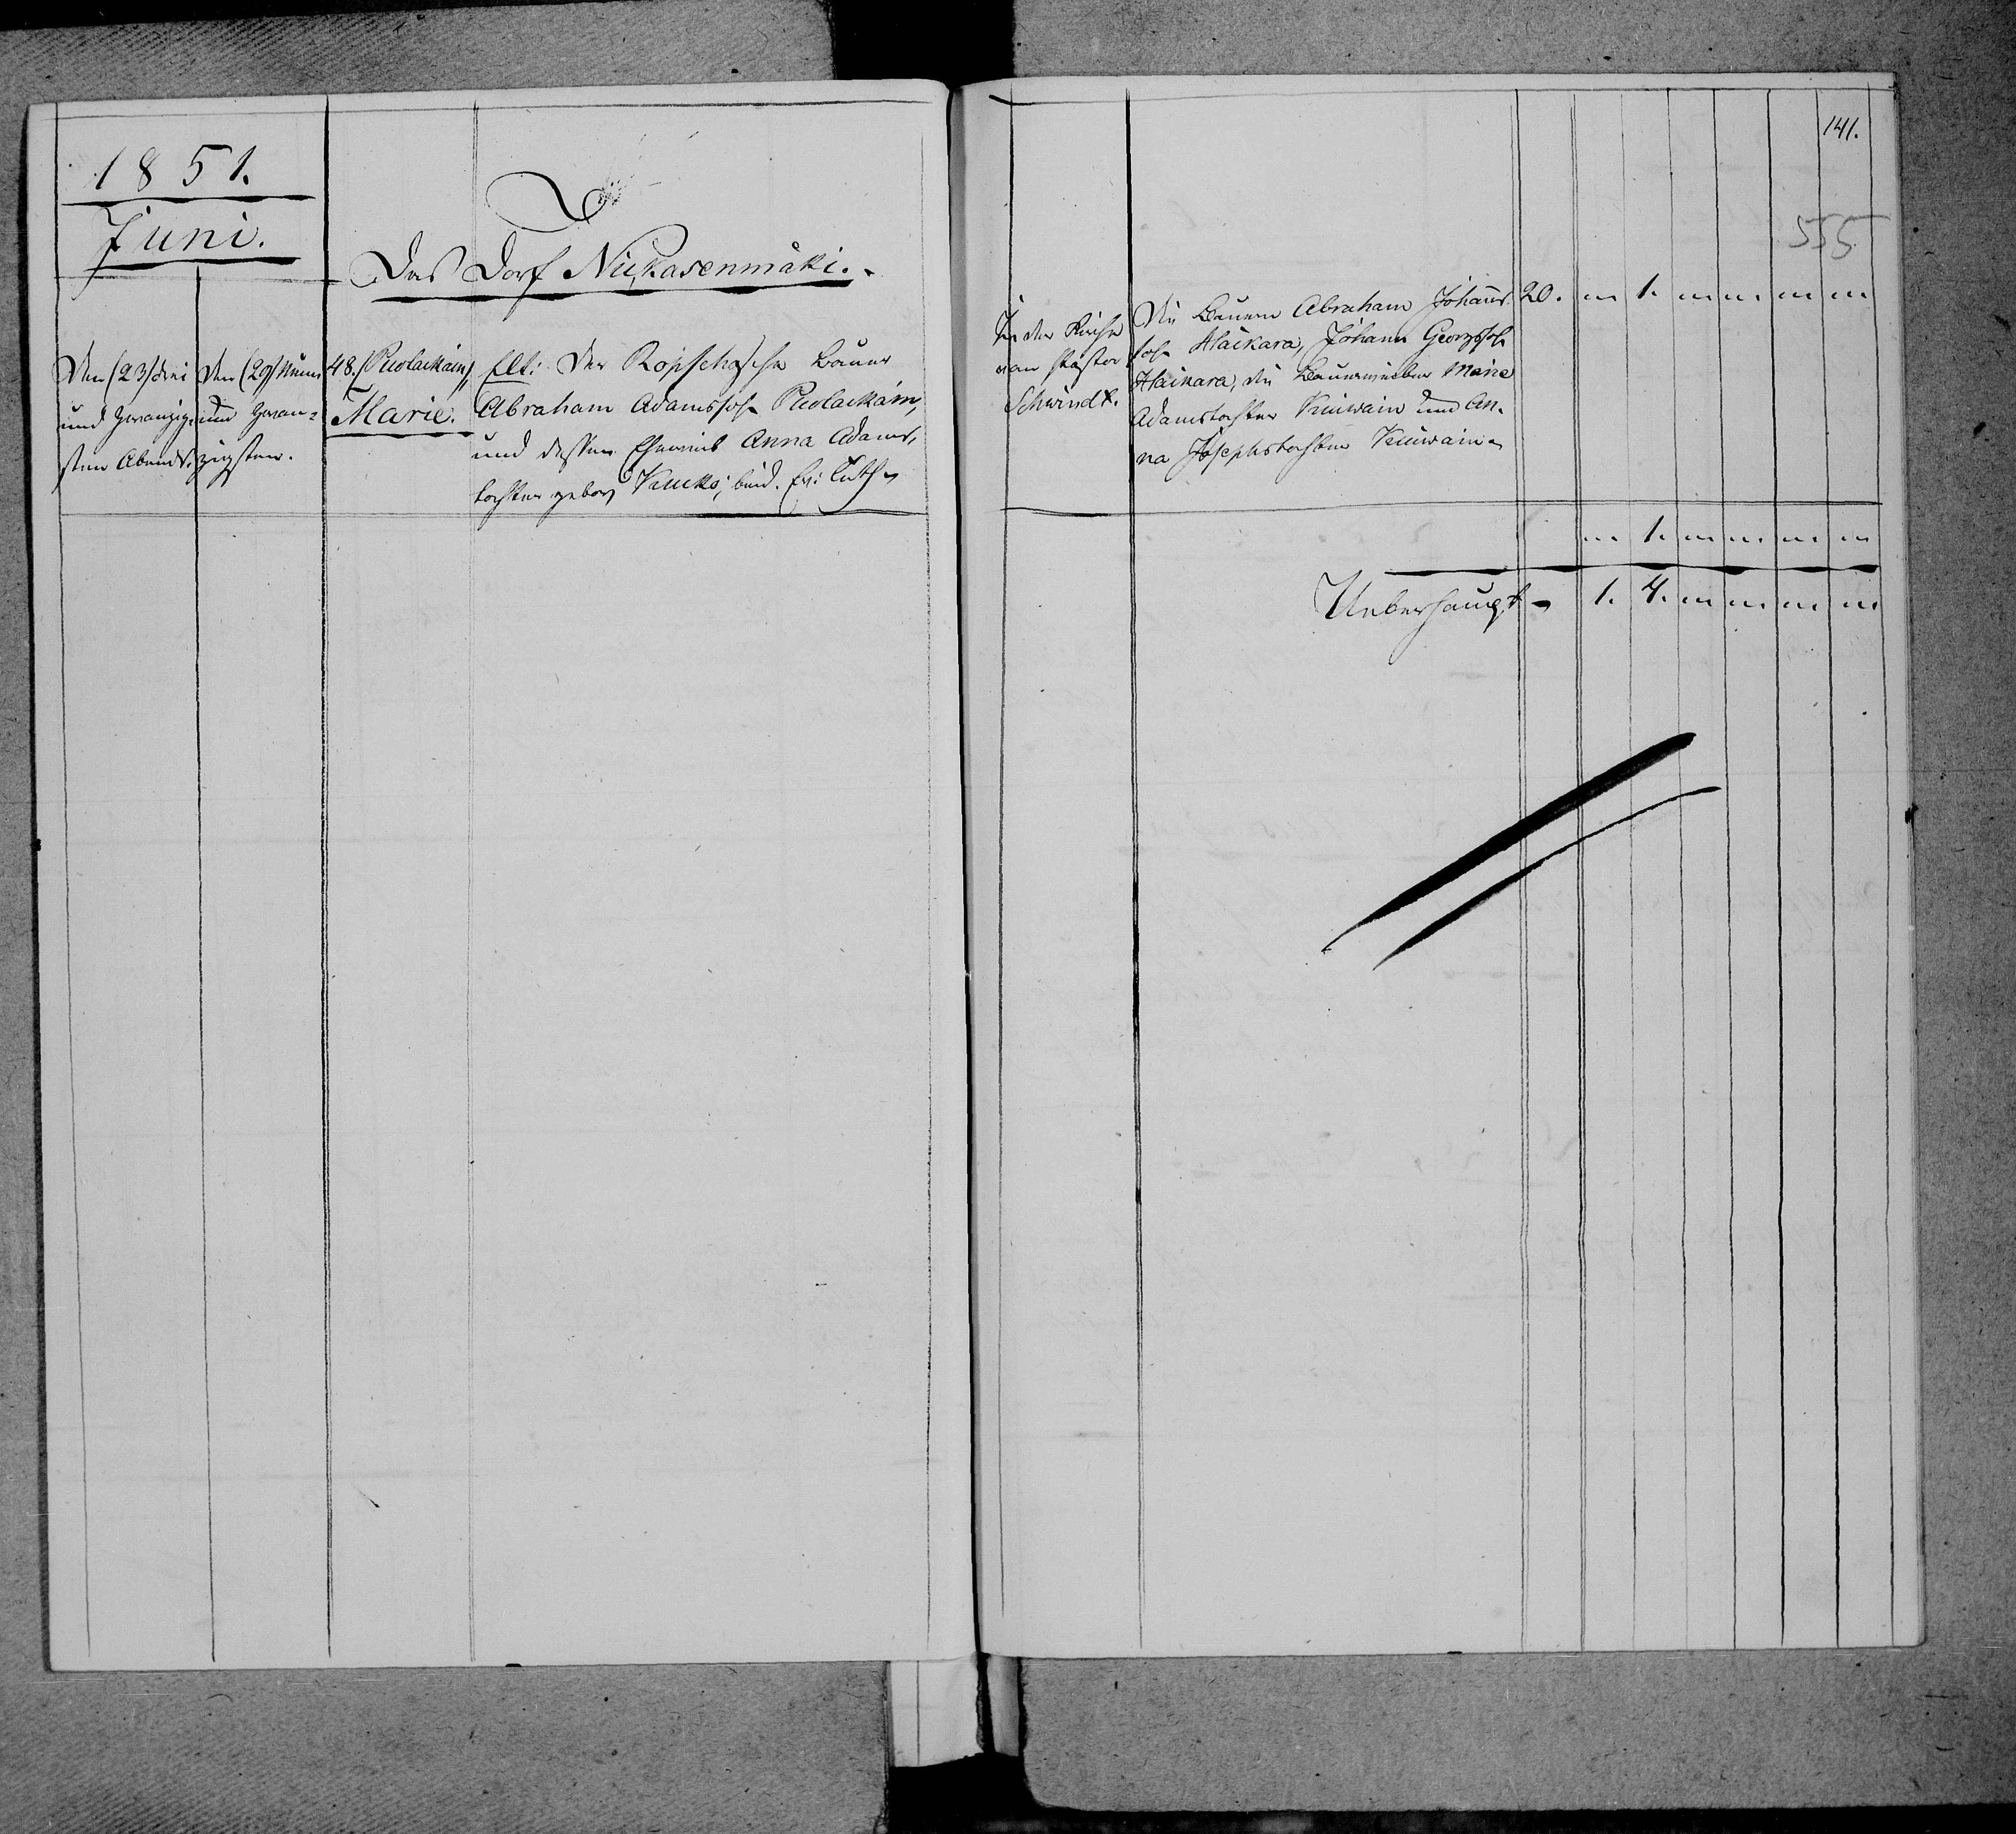 1851.
Juni.
Das Dorf Nickasenmäki.
Den (23) drei
und zwanzig-
sten Abends.
Den (29) Neun
und zwan=
zigsten.
48. (Puolackáin)
Marie.
Elt: Der Ropschasche Bauer
Abraham Adamssohn Puolackáin,
und dessen Eheweib Anna Adams,
tochter gebor Kaucks; beid. Ev: Luth
141.
555
In der Kirche
von Pastor
Schwindt.
Die Bauern Abraham Johanns
sohn Haikara, Johann Georgssohn
Haikara, die Bauerweiber Marie
Adamstochter Kuiwain und An-
na Josephstochter Kuiwain
20. " 1. " " " "
" 1. " " " "
Ueberhaupt 1. 4. " " " "